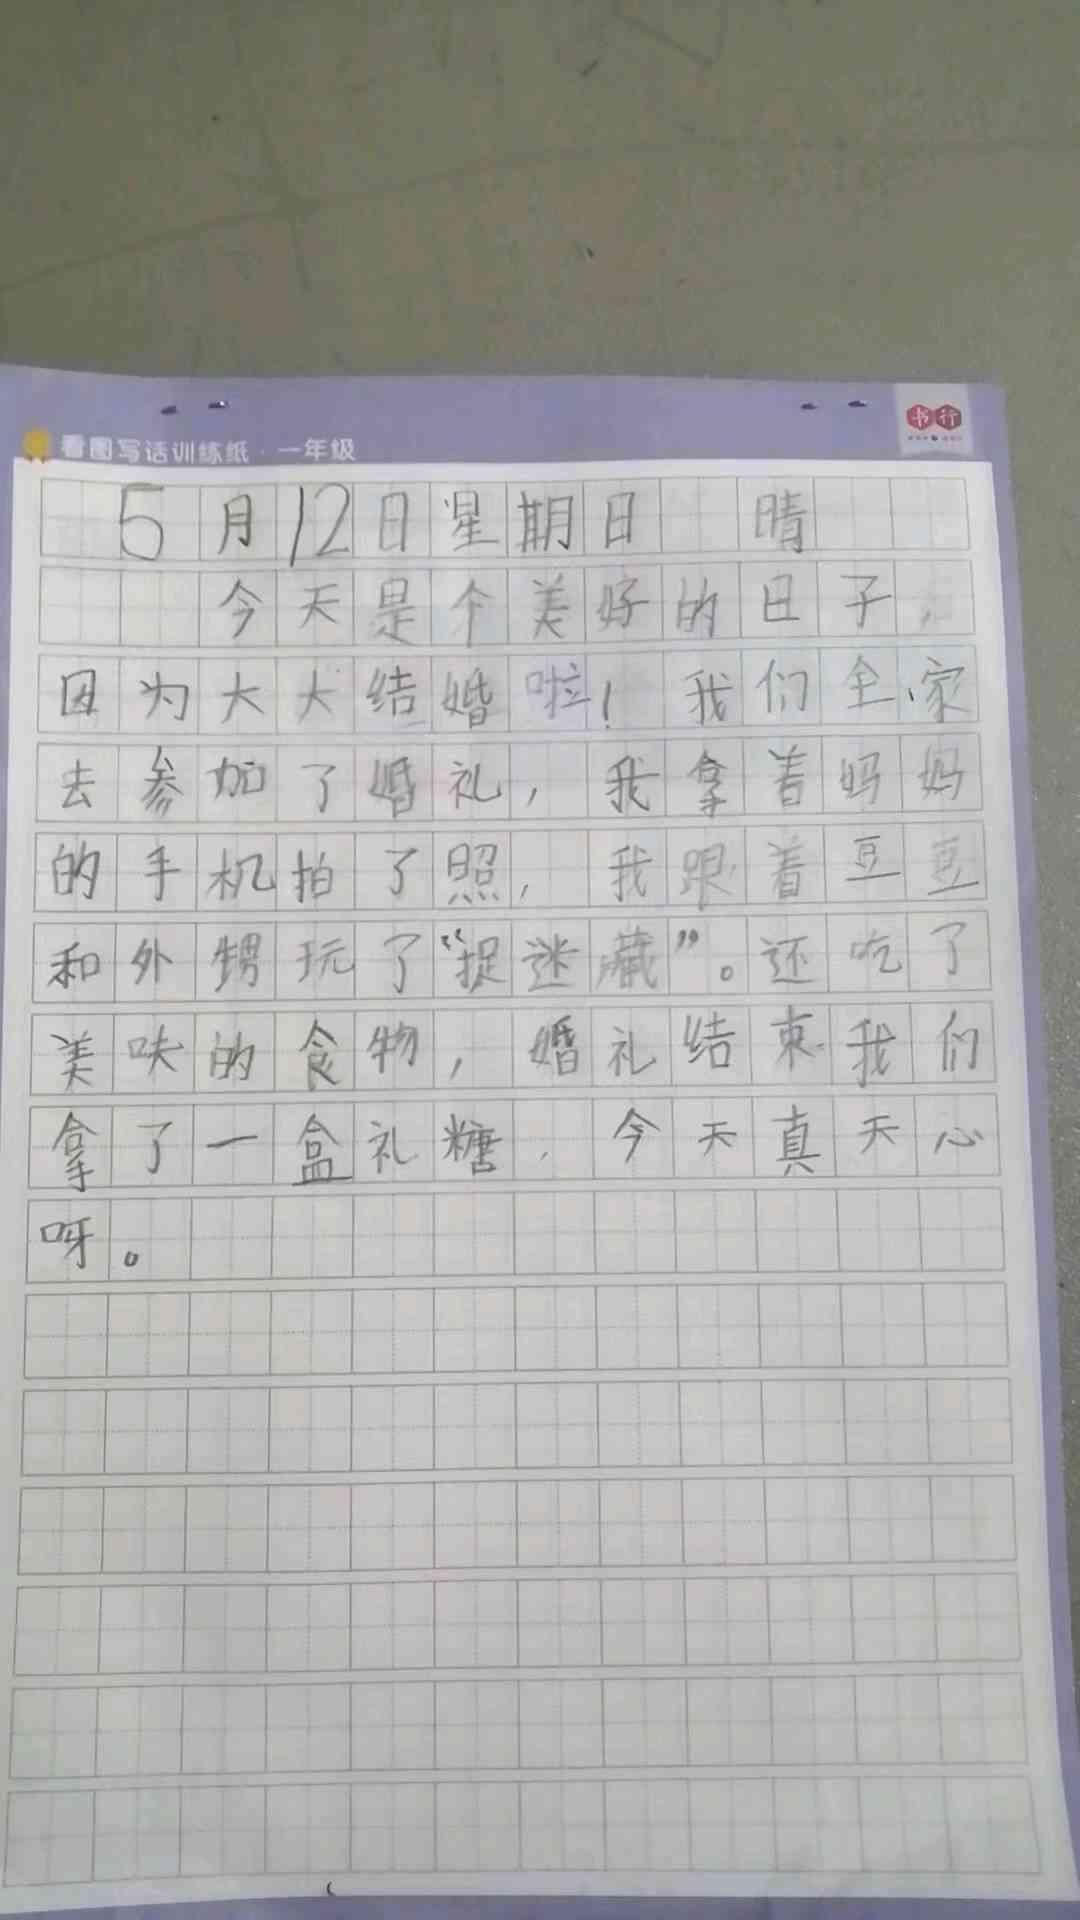 看图写话训练纸·一年级
书行
5月12日星期日 晴
今天是个美好的日子，
因为大大结婚啦！我们全家
去参加了婚礼，我拿着妈妈
的手机拍了照，我跟着豆豆
和外甥玩了“捉迷藏”。还吃了
美味的食物，婚礼结束我们
拿了一盒礼糖，今天真天心
呀。